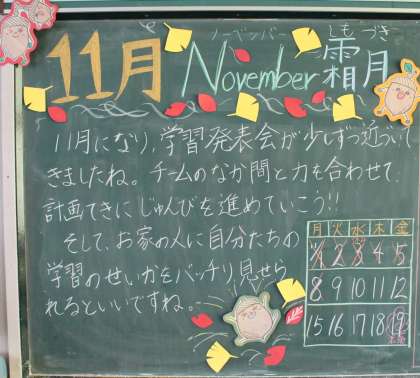 ノーベンバー
しもつき
11月 November 霜月
11月になり、学習発表会が少しずつ近づいて
きましたね。チームのなか間と力を合わせて、
計画てきにじゅんびを進めていこう!!
そして、お家の人に自分たちの
学習のせいかをバッチリ見せら
れるといいですね。
月火水木金
1 2 3 4 5
8 9 10 11 12
15 16 17 18 19